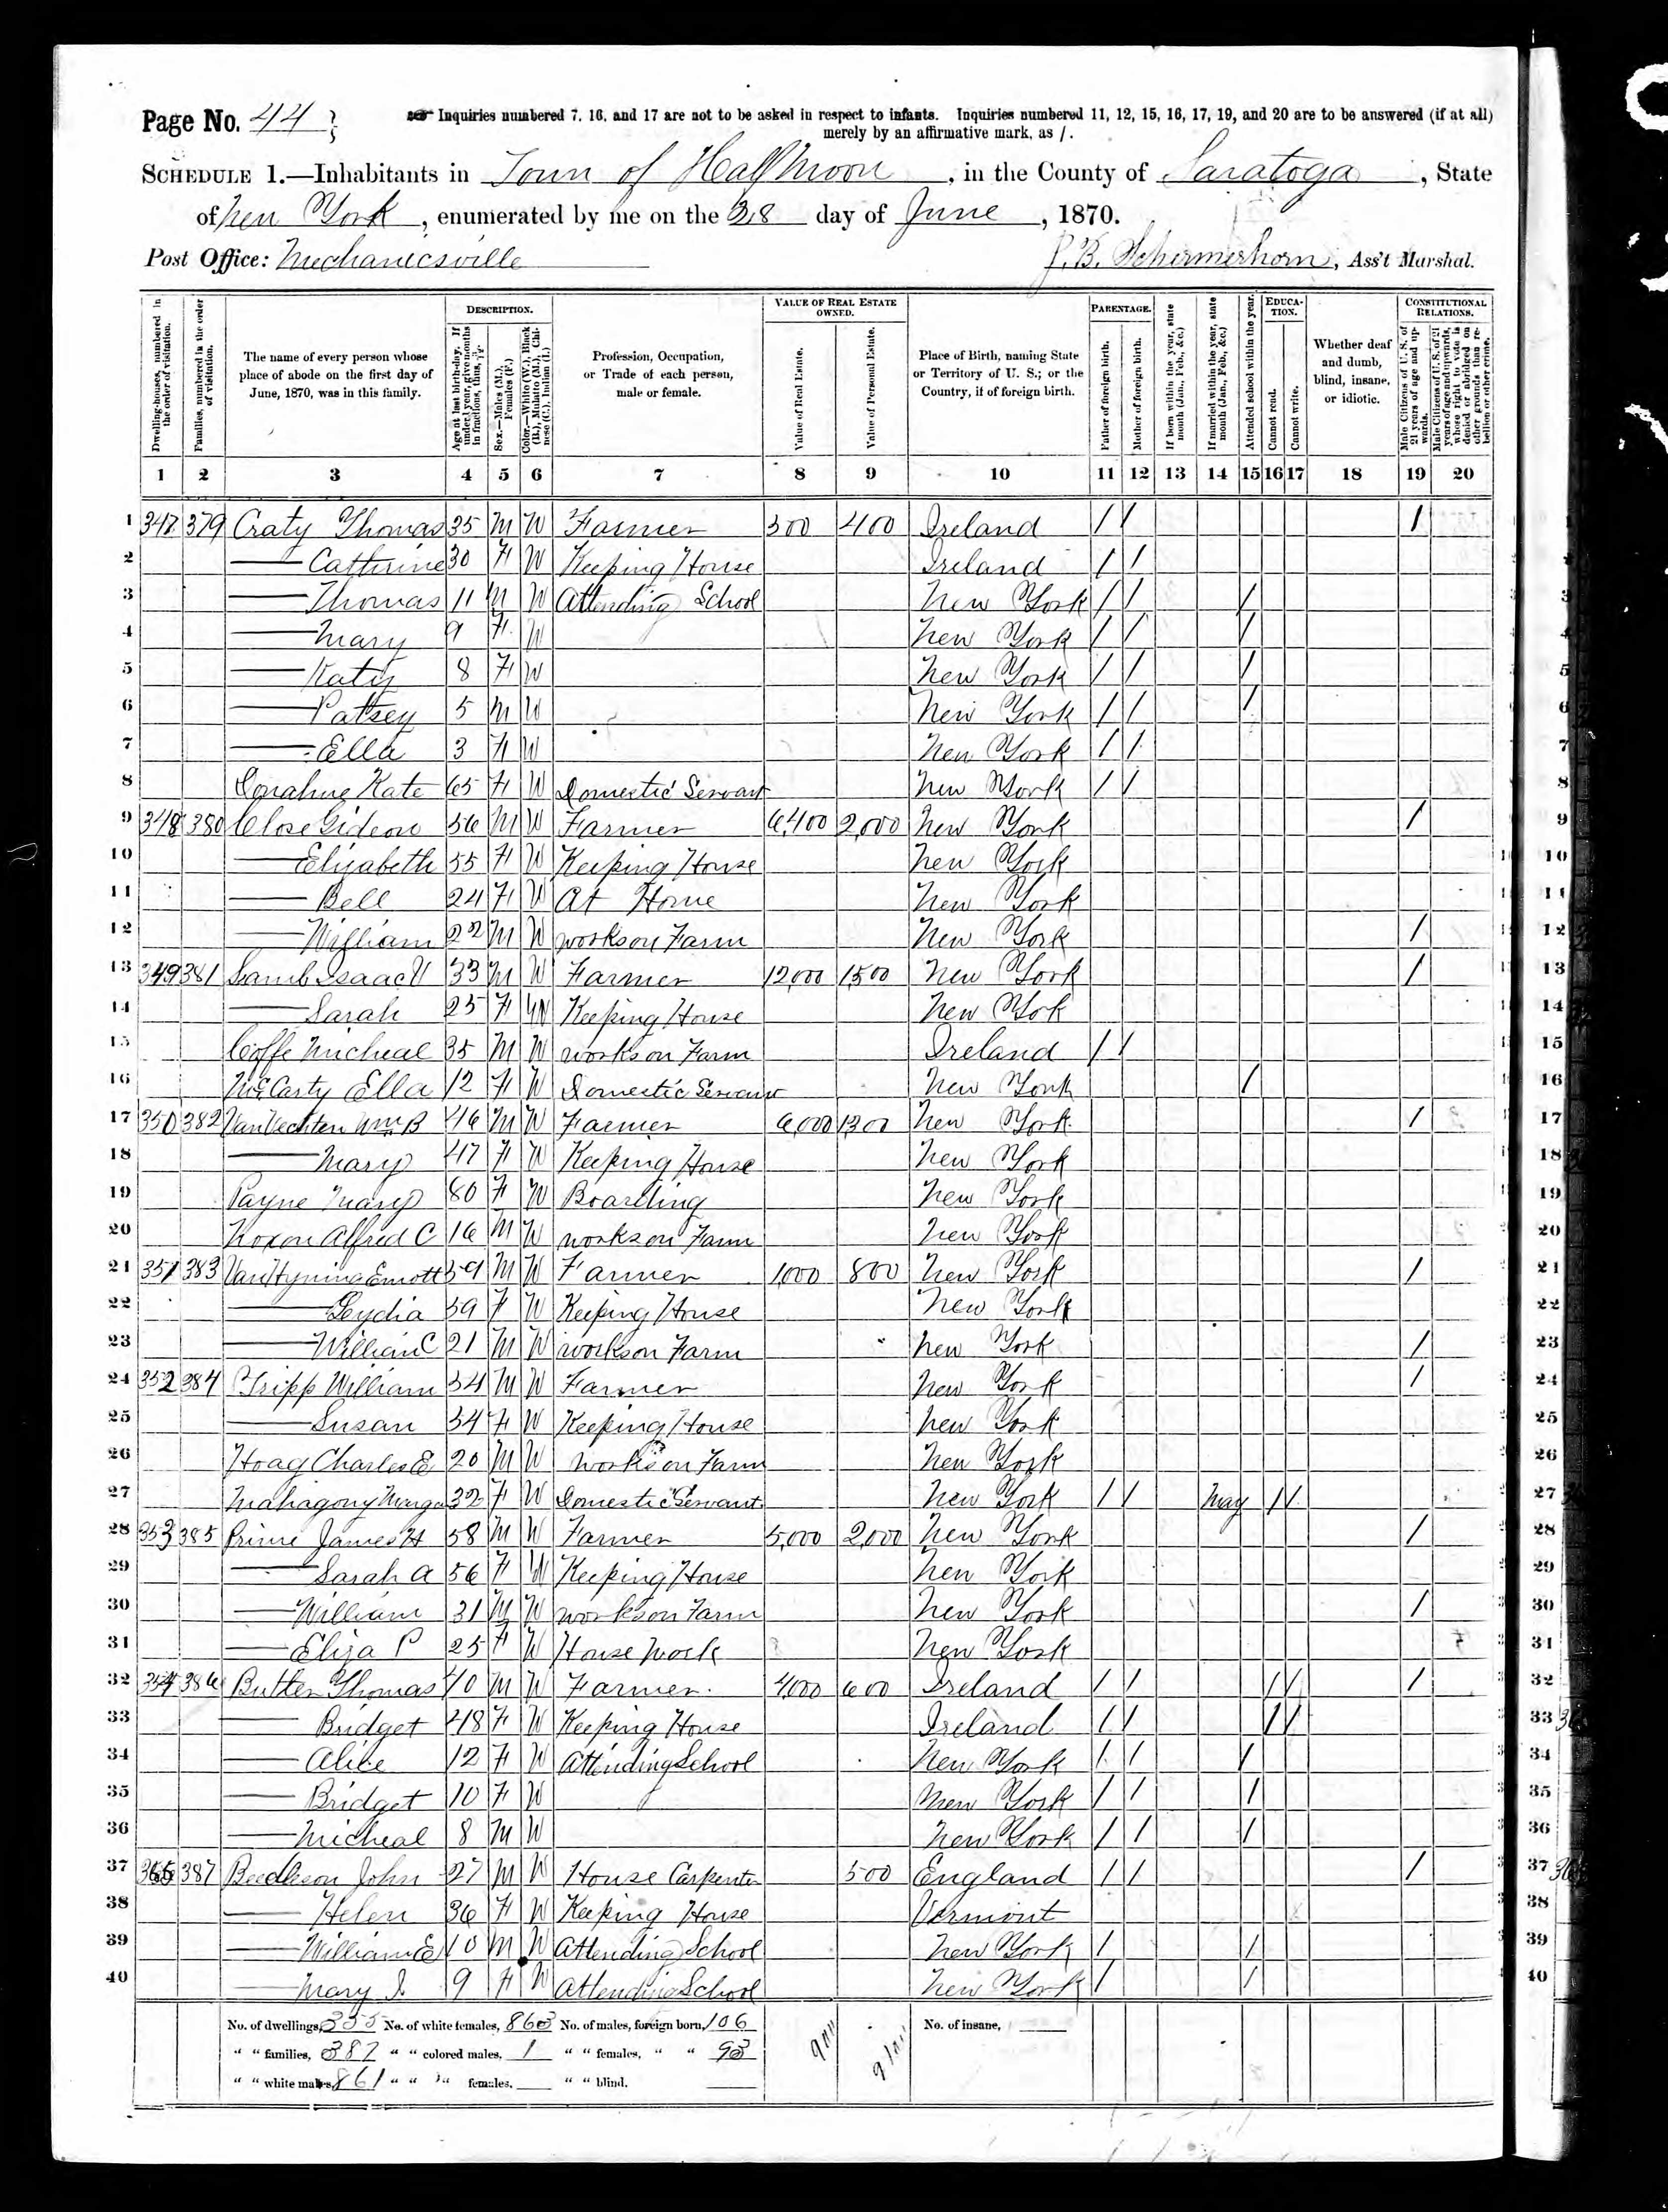 Page No. 44
Inquiries numbered 7, 16, and 17 are not to be asked in respect to infants. Inquiries numbered 11, 12, 15, 16, 17, 19, and 20 are to be answered (if at all)
merely by an affirmative mark, as /.
SCHEDULE 1.—Inhabitants in Town of Halfmoon, in the County of Saratoga, State
of New York, enumerated by me on the 28 day of June, 1870.
Post Office: Mechanicsville
Schermerhorn, Ass't Marshal.
Dwelling-houses, numbered in the order of visitation.
Families, numbered in the order of visitation.
The name of every person whose place of abode on the first day of June, 1870, was in this family.
DESCRIPTION.
Age at last birth-day. If under 1 year, give months in fractions, thus, 3/12.
Sex.—Males (M.), Females (F.)
Color.—White (W.), Black (B.), Mulatto (M.), Chinese (C.), Indian (I.)
Profession, Occupation, or Trade of each person, male or female.
VALUE OF REAL ESTATE OWNED.
Value of Real Estate.
Value of Personal Estate.
Place of Birth, naming State or Territory of U. S.; or the Country, if of foreign birth.
PARENTAGE.
Father of foreign birth.
Mother of foreign birth.
If born within the year, state month (Jan., Feb., &c.)
If married within the year, state month (Jan., Feb., &c.)
Attended school within the year.
EDUCATION.
Cannot read.
Cannot write.
Whether deaf and dumb, blind, insane, or idiotic.
CONSTITUTIONAL RELATIONS.
Male Citizens of U. S. of 21 years of age and upwards.
Male Citizens of U. S. of 21 years of age and upwards, whose right to vote is denied or abridged on other grounds than rebellion or other crime.
1 2 3 4 5 6 7 8 9 10 11 12 13 14 15 16 17 18 19 20
1 347 379 Craty Thomas 35 M W Farmer 300 400 Ireland / / /
2 — Catherine 30 F W Keeping House Ireland / /
3 — Thomas 11 M W Attending School New York / / / 3
4 — Mary 9 F W New York / / / 4
5 — Katy 8 F W New York / / / 5
6 — Patsey 5 M W New York / / / 6
7 — Ella 3 F W New York / / 7
8 Donahue Kate 65 F W Domestic Servant New York / / 8
9 348 380 Close Gideon 56 M W Farmer 6,400 2,000 New York / 9
10 — Elizabeth 55 F W Keeping House New York 10
11 — Bell 24 F W At Home New York 11
12 — William 22 M W works on Farm New York / 12
13 349 381 Lamb Isaac V 33 M W Farmer 12,000 1,500 New York / 13
14 — Sarah 25 F W Keeping House New York 14
15 Coffe Micheal 35 M W works on Farm Ireland / / 15
16 McCarty Ella 12 F W Domestic Servant New York / 16
17 350 382 VanVechten Wm B 46 M W Farmer 6,000 1300 New York / 17
18 — Mary 47 F W Keeping House New York 18
19 Payne Mary 80 F W Boarding New York 19
20 Noxon Alfred C 16 M W works on Farm New York 20
21 351 383 VanHyning Emott 59 M W Farmer 1,000 800 New York / 21
22 — Lydia 59 F W Keeping House New York 22
23 — William C 21 M W works on Farm New York / 23
24 352 384 Tripp William 34 M W Farmer New York / 24
25 — Susan 34 F W Keeping House New York 25
26 Hoag Charles E 20 M W works on Farm New York 26
27 Mahagony Marga 32 F W Domestic Servant New York / / May / / 27
28 353 385 Prime James H 58 M W Farmer 5,000 2,000 New York / 28
29 — Sarah A 56 F W Keeping House New York 29
30 — William 31 M W works on Farm New York / 30
31 — Eliza P 25 F W House work New York 31
32 354 386 Butler Thomas 40 M W Farmer 4,000 600 Ireland / / / / / 32
33 — Bridget 48 F W Keeping House Ireland / / / / 33
34 — Alice 12 F W Attending School New York / / / 34
35 — Bridget 10 F W New York / / / 35
36 — Micheal 8 M W New York / / / 36
37 355 387 John 27 M W House Carpenter 500 England / / / 37
38 — Helen 36 F W Keeping House Vermont 38
39 — William E 10 M W Attending School New York / / 39
40 — Mary J. 9 F W Attending School New York / / 40
No. of dwellings, 355 No. of white females, 863 No. of males, foreign born, 106 No. of insane,
" " families, 387 " " colored males, 1 " " females, " " 93
" " white males, 861 " " " females, " " blind.